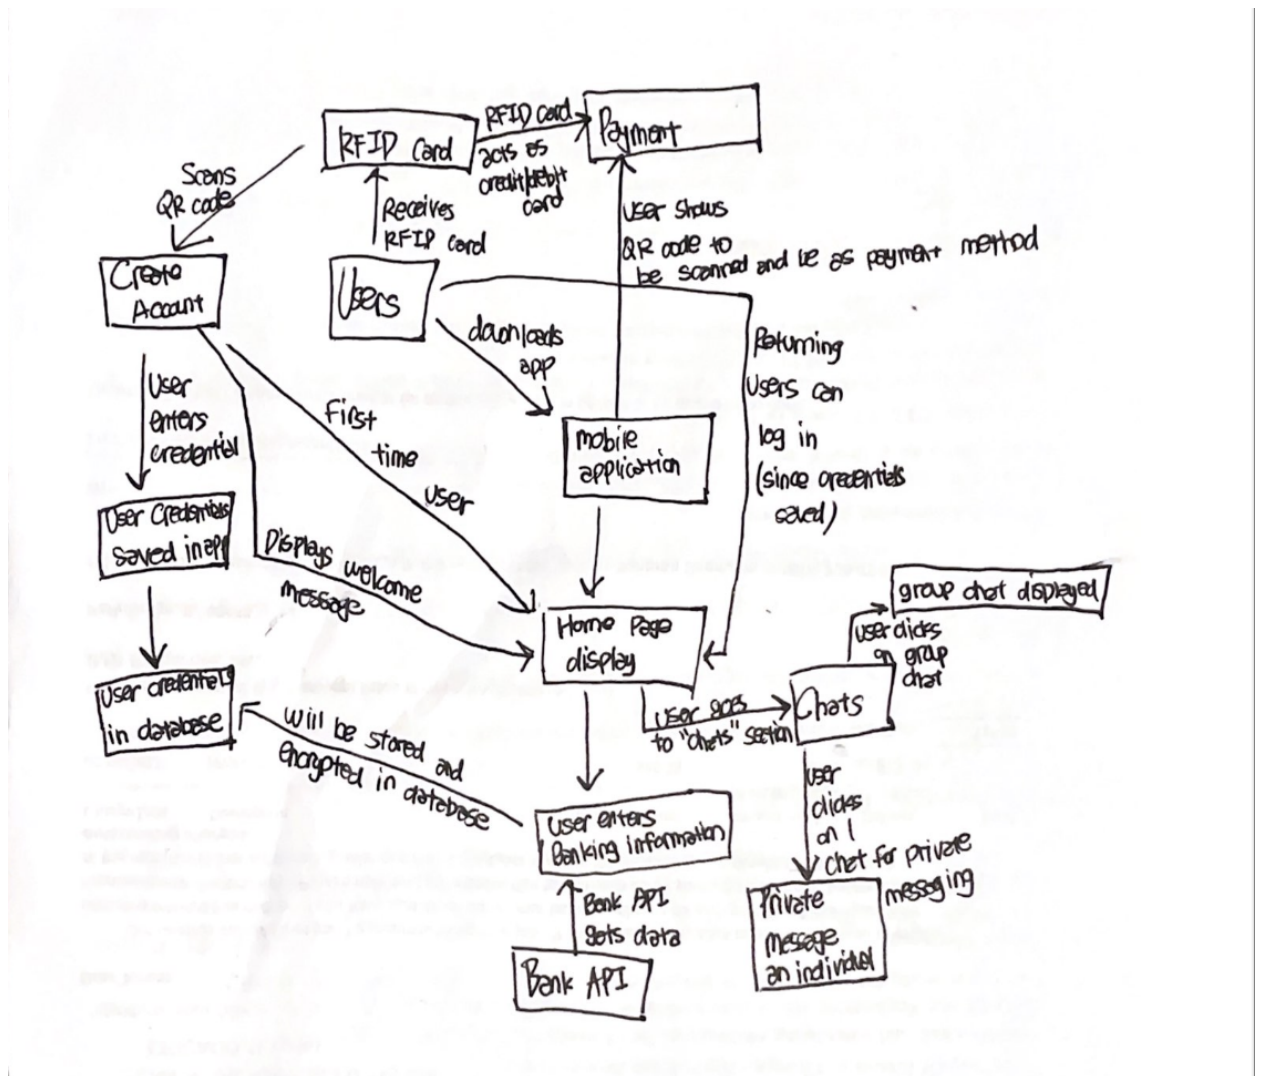 RFID card
RFID card
acts as
credit/debit
card
Payment
Scans
QR code
Receives
RFID card
user shows
QR code to
be scanned and be as payment method
Create
Account
Users
downloads
app
Returning
users can
log in
(since credentials
saved)
User
enters
credential
First
time
user
mobile
application
User Credentials
saved in app
Displays welcome
message
Home Page
display
group chat displayed
user clicks
on group
chat
Chats
user goes
to "chats" section
User credentials
in database
will be stored and
encrypted in database
user enters
banking information
user
clicks
on 1
chat for private
messaging
Bank API
gets data
Bank API
Private
message
an individual